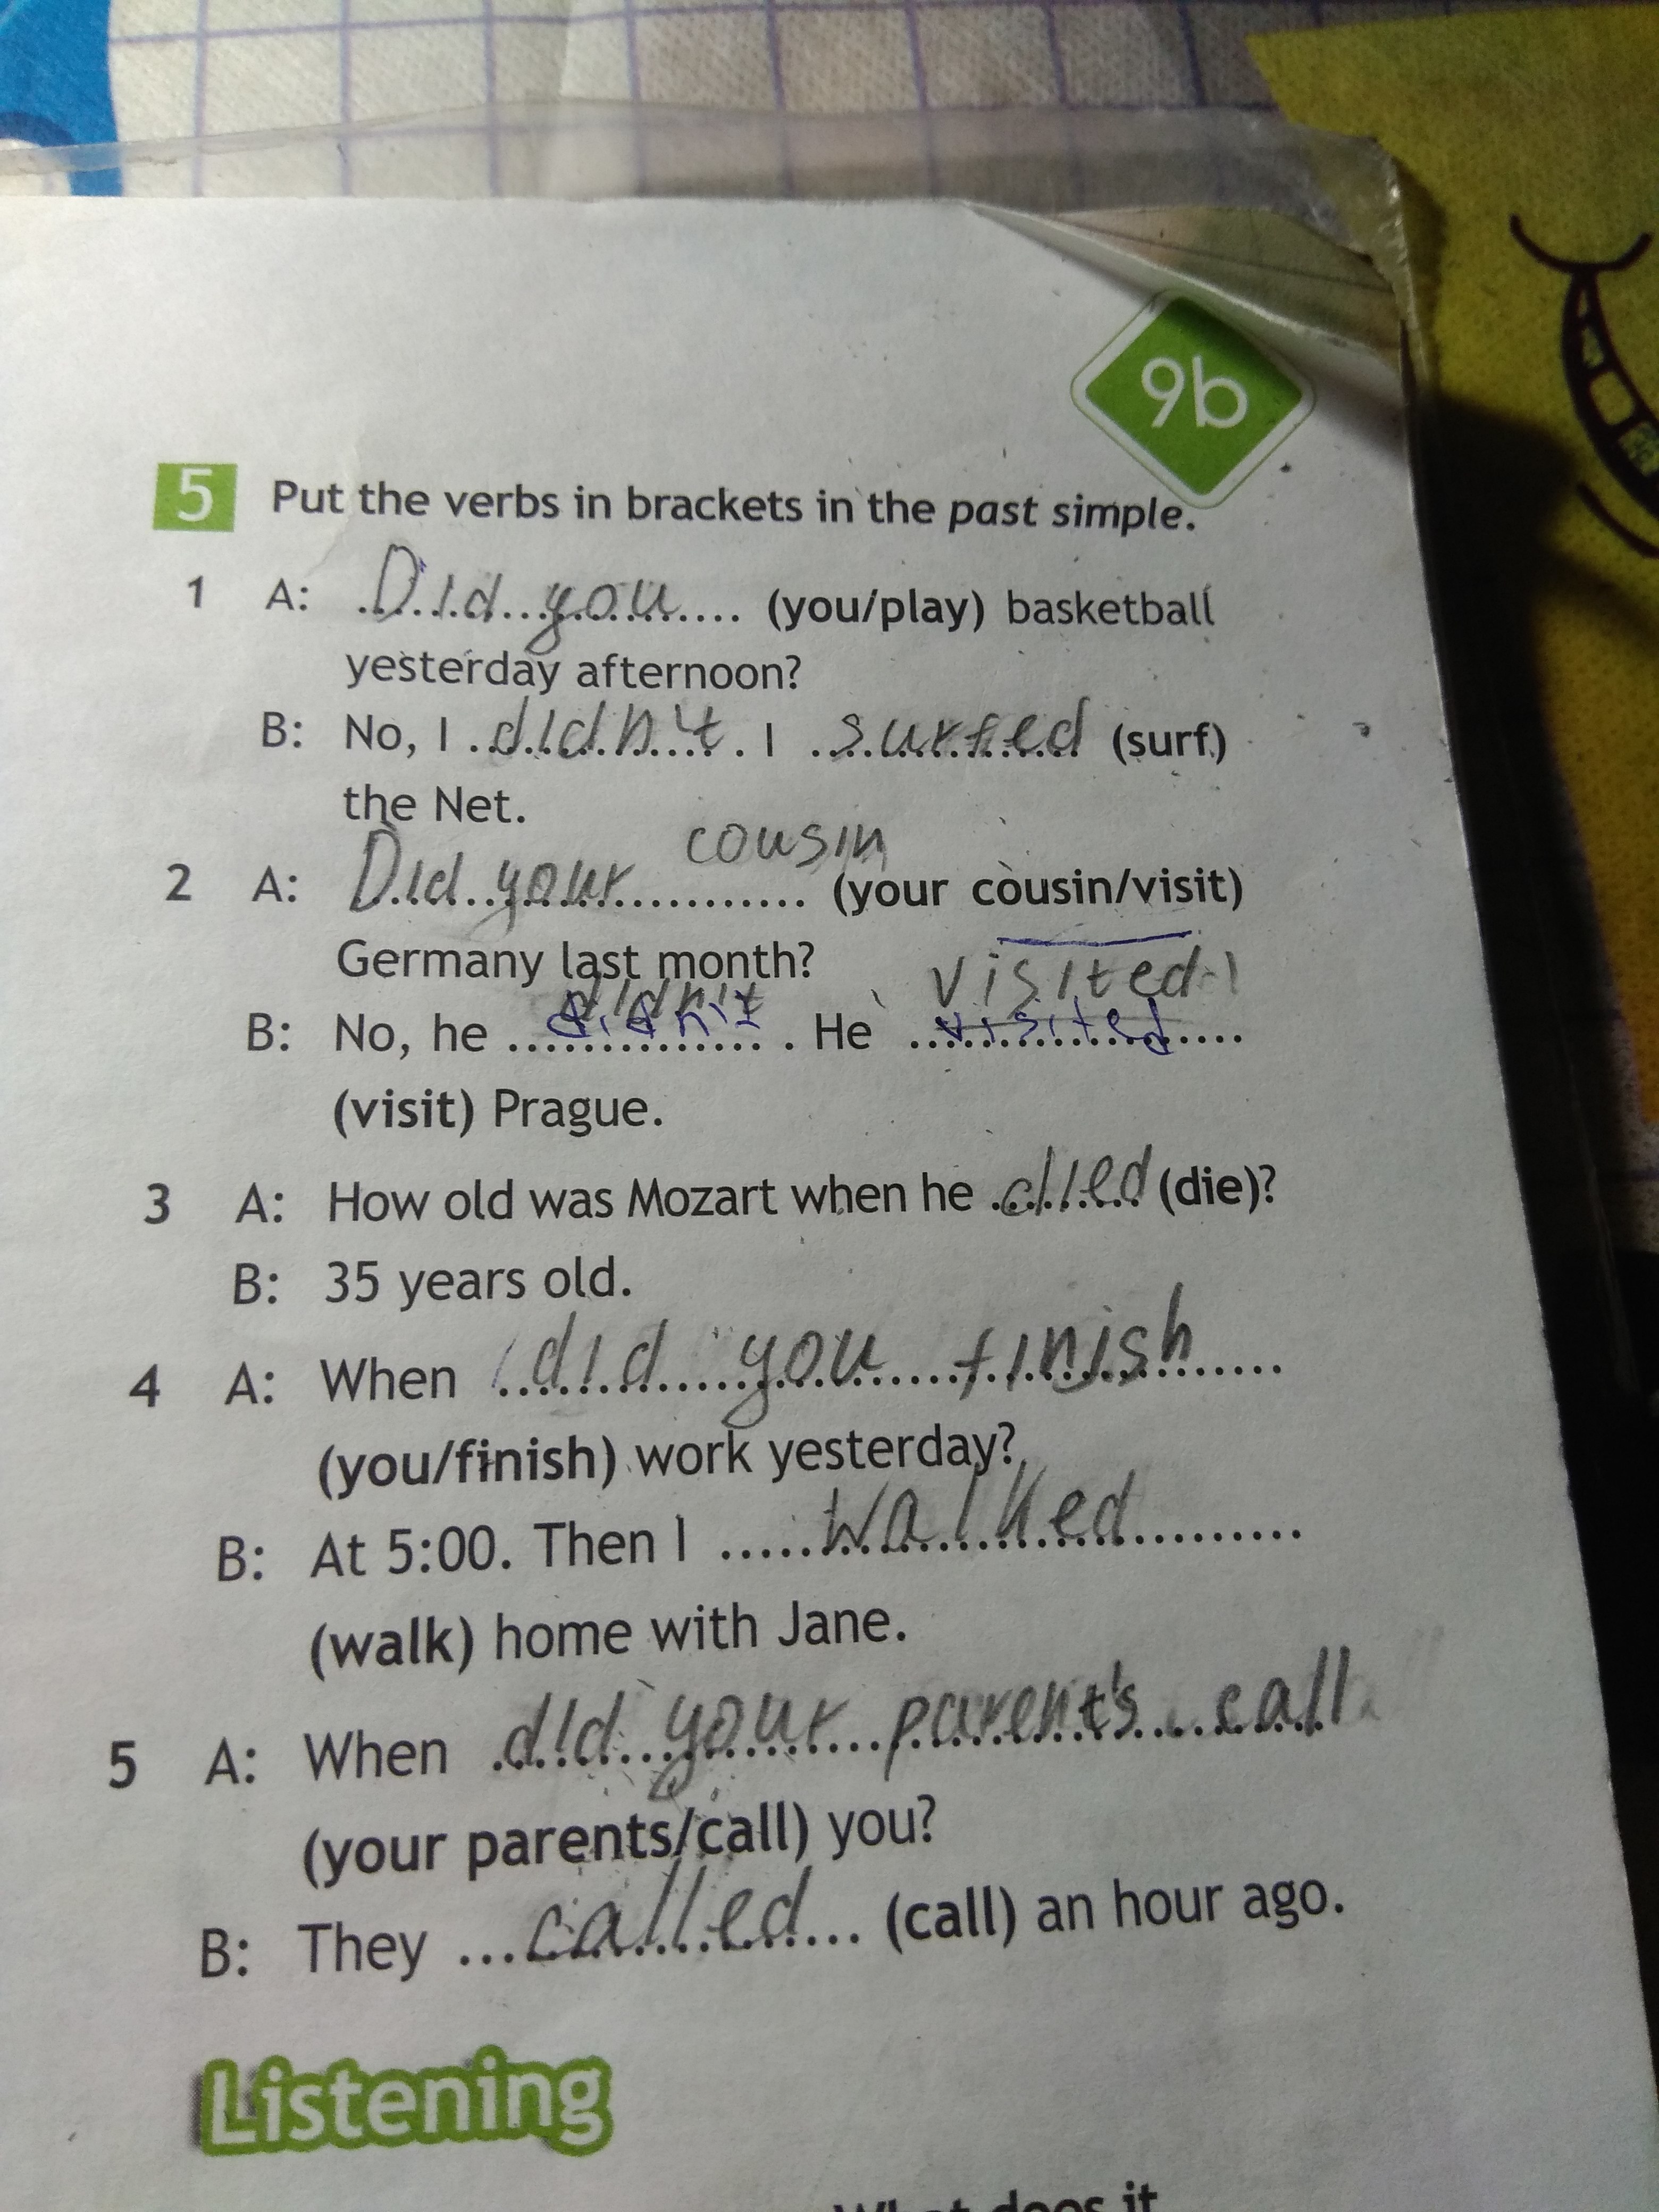 9b
5 Put the verbs in brackets in the past simple.
1 A: Did you (you/play) basketball
yesterday afternoon?
B: No, I didn't. I surfed (surf)
the Net.
cousin
2 A: Did your (your cousin/visit)
Germany last month?
didn't visited
B: No, he didn't. He visited
(visit) Prague.
3 A: How old was Mozart when he died (die)?
B: 35 years old.
4 A: When did you finish
(you/finish) work yesterday?
B: At 5:00. Then I walked
(walk) home with Jane.
5 A: When did your parent's call
(your parents/call) you?
B: They called (call) an hour ago.
Listening
What does it